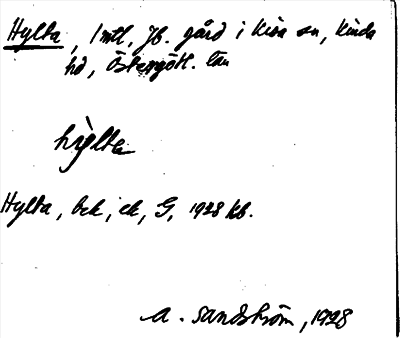 Hylta, 1 mtl. Jb. gård i Kisa sn, Kinda
hd, Östergötl. län
hỳlta
Hylta, bek, ek, G, 1928 kb.
A. Sandström, 1928